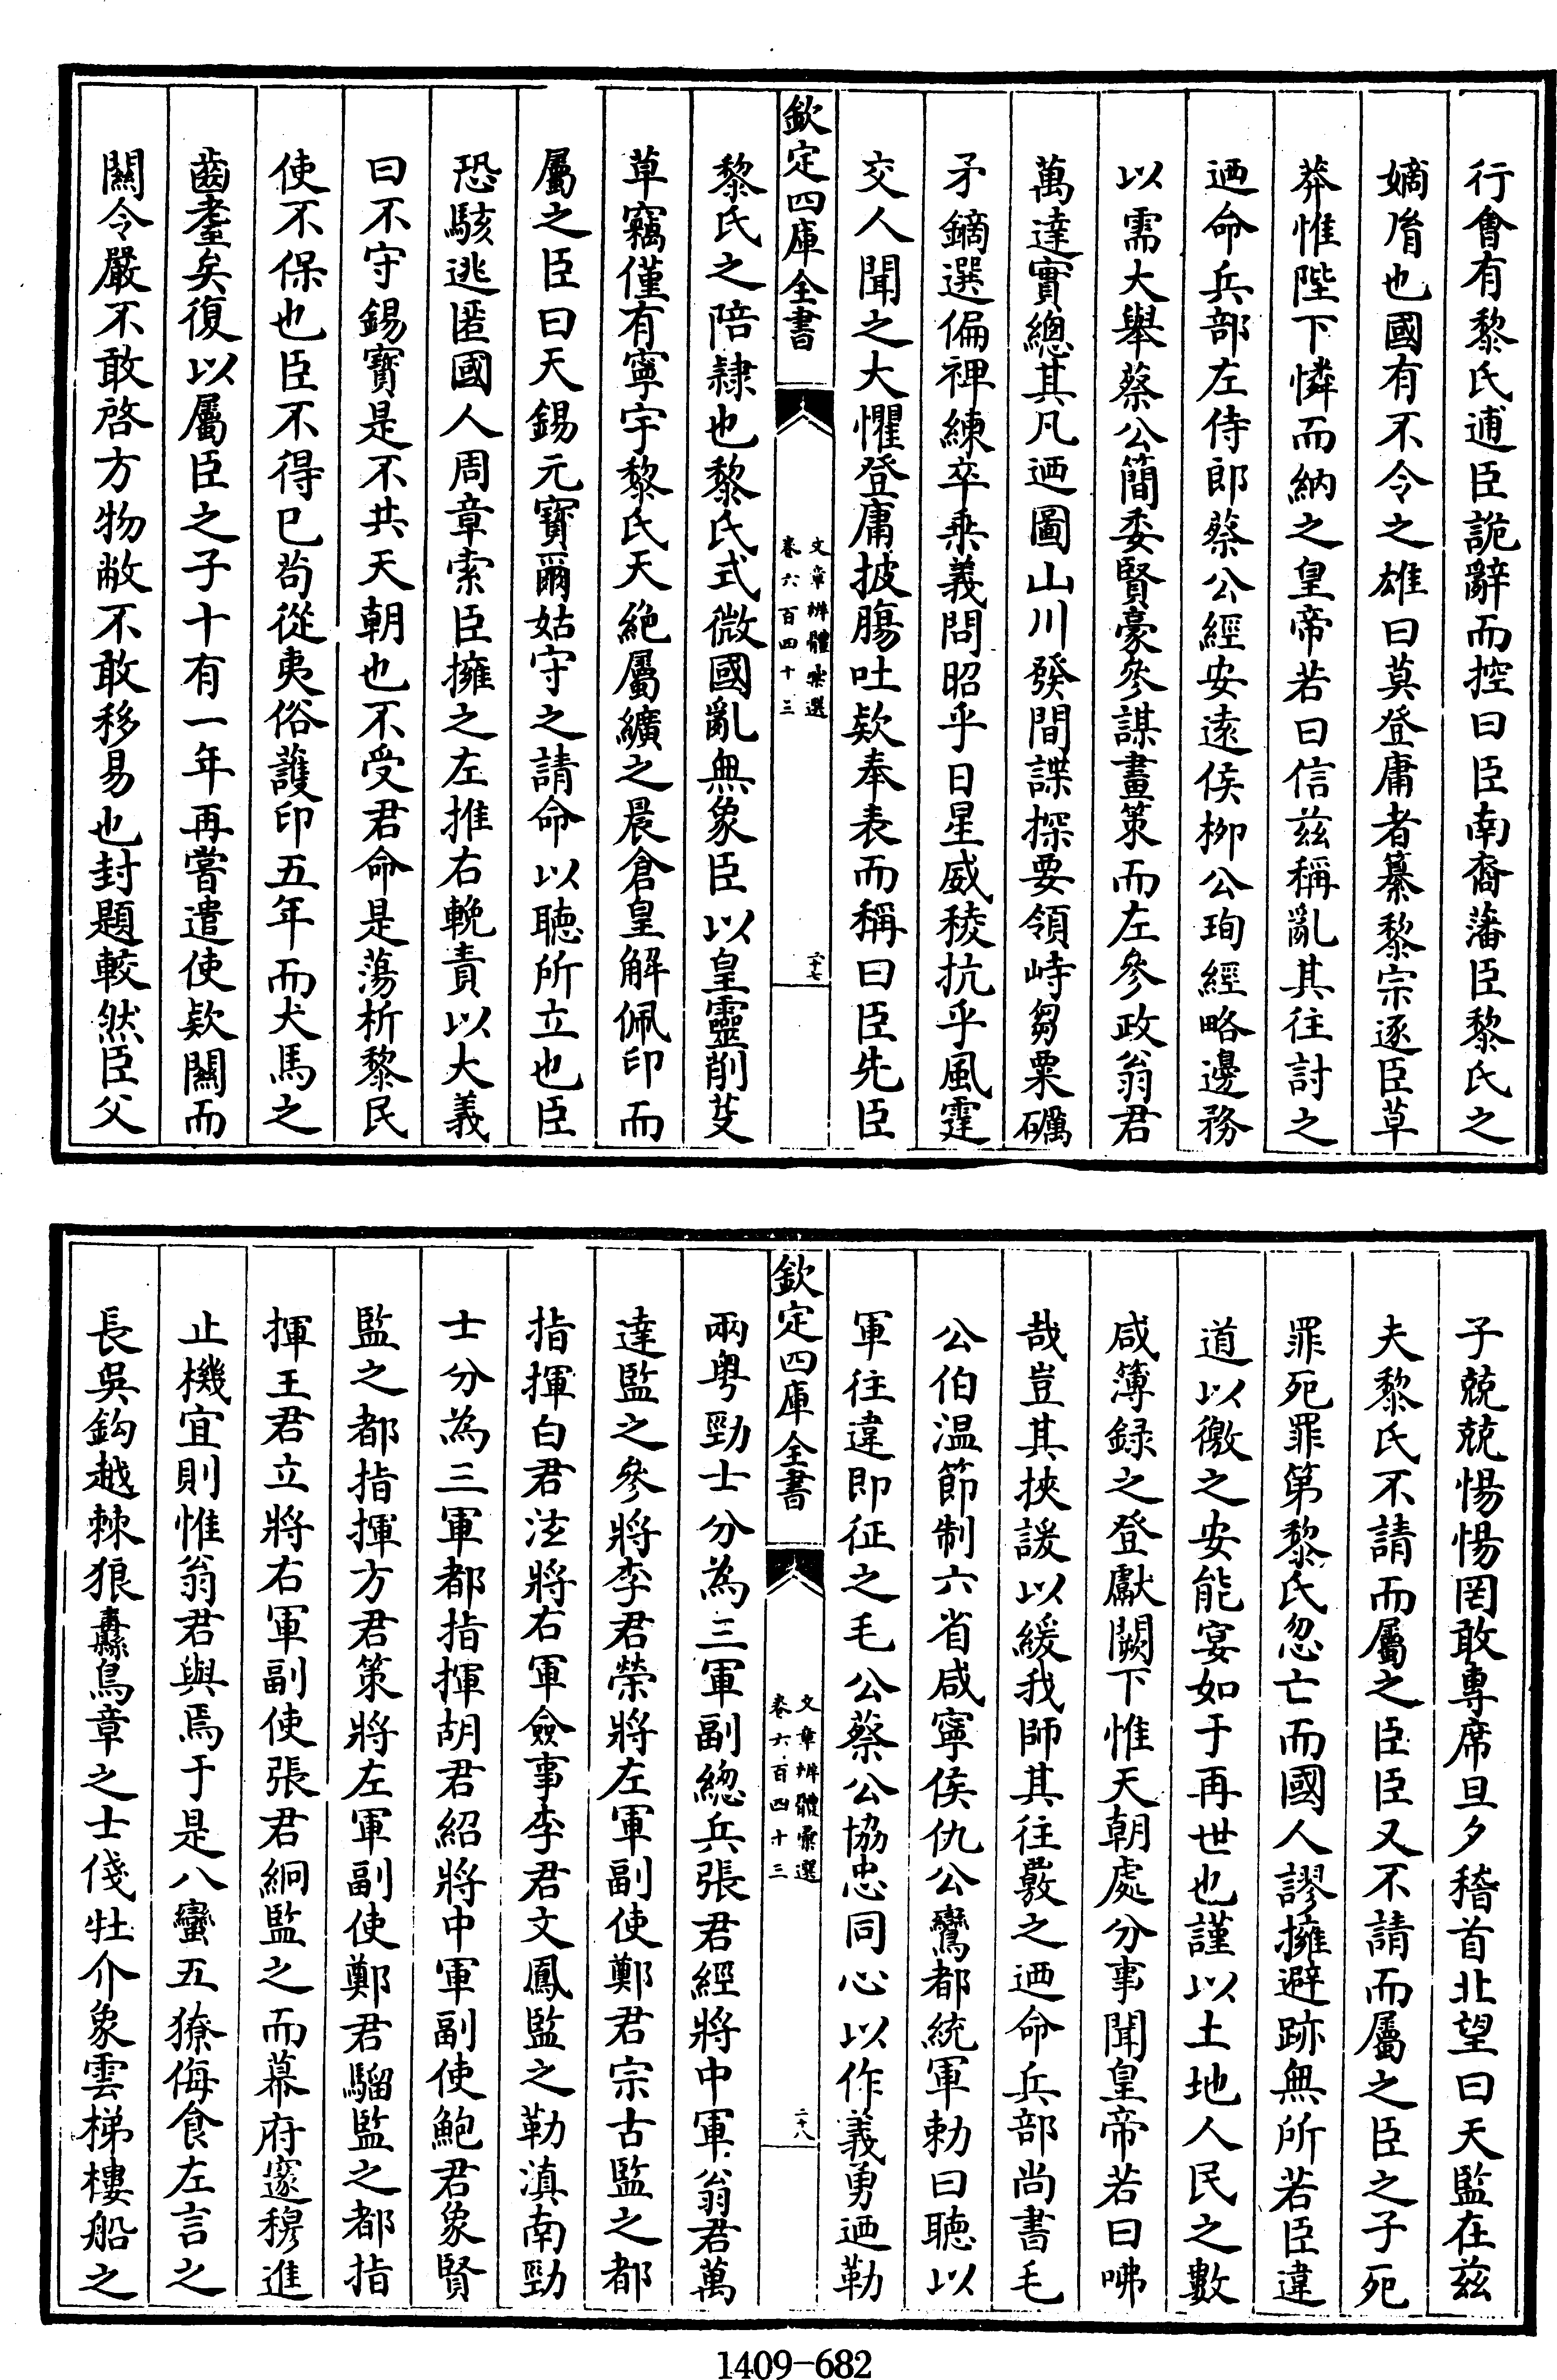 行會有黎氏逋臣詭辭而控曰臣南裔藩臣黎氏之
嫡胤也國有不令之雄曰莫登庸者纂黎宗逐臣草
莽惟陛下憐而納之皇帝若曰信茲稱亂其往討之
迺命兵部左侍郎蔡公經安遠侯柳公珣經略邊務
以需大舉蔡公簡委賢豪參謀畫策而左參政翁君
萬達實總其凡迺圖山川發間諜探要領峙芻粟礪
矛鏑選偏裨練卒乗義問昭乎日星威稜抗乎風霆
交人聞之大懼登庸披膓吐欵奉表而稱曰臣先臣
欽定四庫全書
文章辨體彚選
卷六百四十三
二十七
黎氏之陪隷也黎氏式微國亂無象臣以皇靈削芟
草竊僅有寧宇黎氏天絶屬纊之晨倉皇解佩印而
屬之臣曰天錫元寶爾姑守之請命以聴所立也臣
恐駭逃匿國人周章索臣擁之左推右輓責以大義
曰不守錫寶是不共天朝也不受君命是蕩析黎民
使不保也臣不得已茍從夷俗護印五年而犬馬之
齒耋矣復以屬臣之子十有一年再嘗遣使欵關而
關令嚴不敢啓方物敝不敢移易也封題較然臣父
子兢兢惕惕罔敢專席旦夕稽首北望曰天監在茲
夫黎氏不請而屬之臣臣又不請而屬之臣之子死
罪死罪第黎氏忽亡而國人謬擁避跡無所若臣違
道以徼之安能宴如于再世也謹以土地人民之數
咸簿録之登獻闕下惟天朝處分事聞皇帝若曰咈
哉豈其挾諼以緩我師其往覈之迺命兵部尚書毛
公伯温節制六省咸寧侯仇公鸞都統軍勅曰聴以
軍往違即征之毛公蔡公協忠同心以作義勇迺勒
欽定四庫全書
文章辨體彚選
卷六百四十三
二十八
兩粤勁士分為三軍副總兵張君經將中軍翁君萬
達監之參將李君榮將左軍副使鄭君宗古監之都
指揮白君泫將右軍僉事李君文鳳監之勒滇南勁
士分為三軍都指揮胡君紹將中軍副使鮑君象賢
監之都指揮方君策將左軍副使鄭君騮監之都指
揮王君立將右軍副使張君絅監之而幕府邃穆進
止機宜則惟翁君與焉于是八蠻五獠侮食左言之
長吳鈎越棘狼纛鳥章之士俴牡介象雲梯樓船之
1409-682